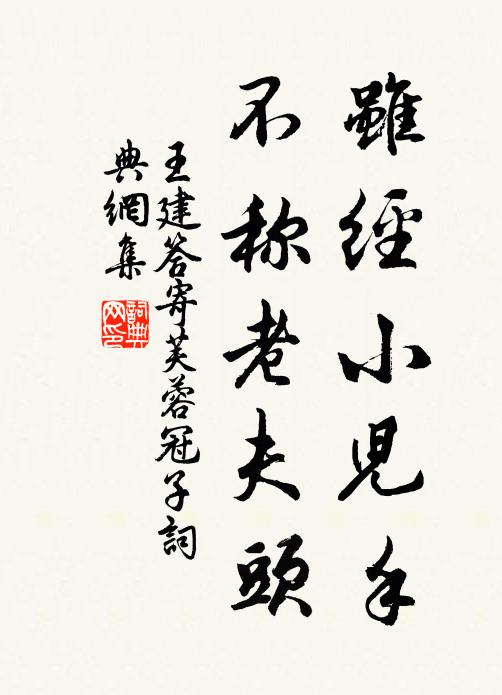 雖經小兒手
不称老夫頭
王建答寄芙蓉冠子詞
典網集
詞典
网印